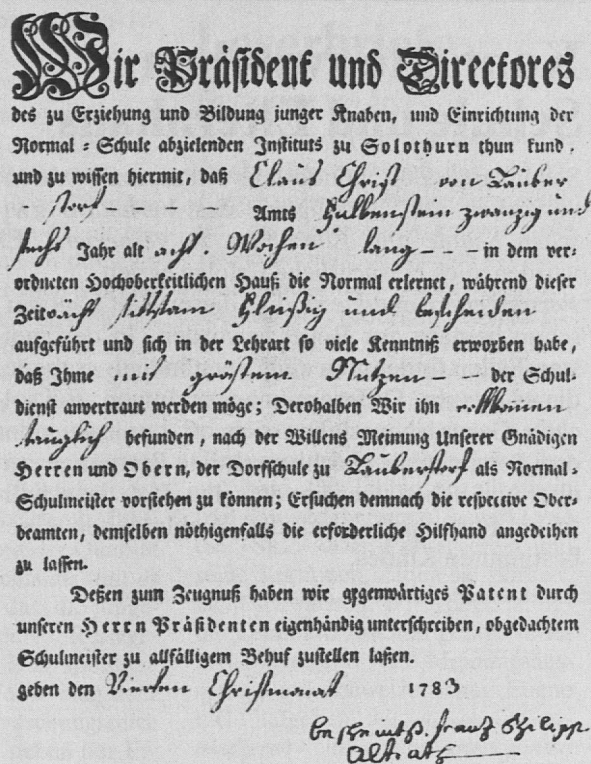 Wir Präsident und Directores
des zu Erziehung und Bildung junger Knaben, und Einrichtung der
Normal-Schule abzielenden Instituts zu Solothurn thun kund,
und zu wissen hiermit, daß Claus Christ von Däuber
storf - - - Amts Halbenstein zwanzig und
sechs Jahr alt acht. Wochen lang - - - in dem ver-
ordneten Hochoberkeitlichen Hauß die Normal erlernet, während dieser
Zeit sittsam fleißig und bescheiden
aufgeführt und sich in der Lehrart so viele Kenntniß erworben habe,
daß Ihme mit gröstem Nutzen - - der Schul-
dienst anvertraut werden möge; Derohalben Wir ihn vollkommen
tauglich befunden, nach der Willens Meinung Unserer Gnädigen
Herren und Obern, der Dorfschule zu Däuberstorf als Normal-
Schulmeister vorstehen zu können; Ersuchen demnach die respective Ober-
beamten, demselben nöthigenfalls die erforderliche Hilfhand angedeihen
zu lassen.
Deßen zum Zeugnuß haben wir gegenwärtiges Patent durch
unseren Herrn Präsidenten eigenhändig unterschreiben, obgedachtem
Schulmeister zu allfälligem Behuf zustellen laßen.
geben den Vierten Christmonat 1783
bescheints. Frantz Philipp
Altrath